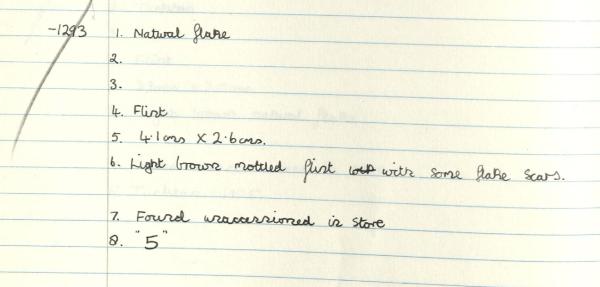 -1293 1. Natural flake
2.
3.
4. Flint
5. 4.1cms X 2.6cms.
6. Light brown mottled flint with some flake scars.
7. Found unaccessioned in store
8. "5"